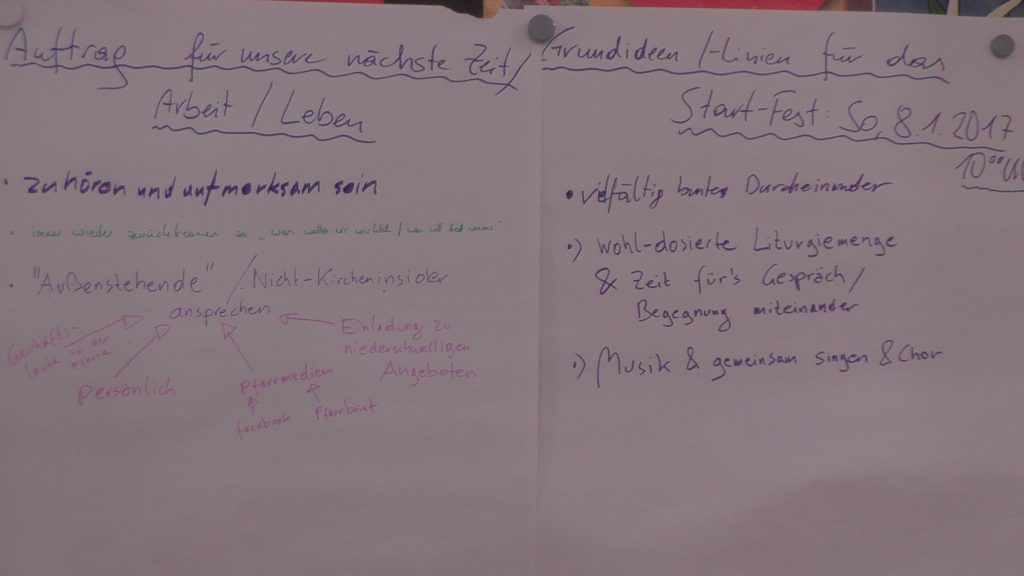 Auftrag für unsere nächste Zeit/
Arbeit / Leben
• zuhören und aufmerksam sein
• immer wieder zurückkommen zu "was wollen wir wirklich /
• "Außenstehende" / Nicht-Kircheninsider
ansprechen
Geschäfts-
leute in der
Pfarre
persönlich
Pfarrmedien
facebook
Pfarrbrief
Einladung zu
niederschwelligen
Angeboten
Grundideen /-Linien für das
Start-Fest: So, 8.1.2017
10⁰⁰
• vielfältig buntes Durcheinander
•) wohl-dosierte Liturgiemenge
& Zeit für's Gespräch /
Begegnung miteinander
•) Musik & gemeinsam singen & Chor